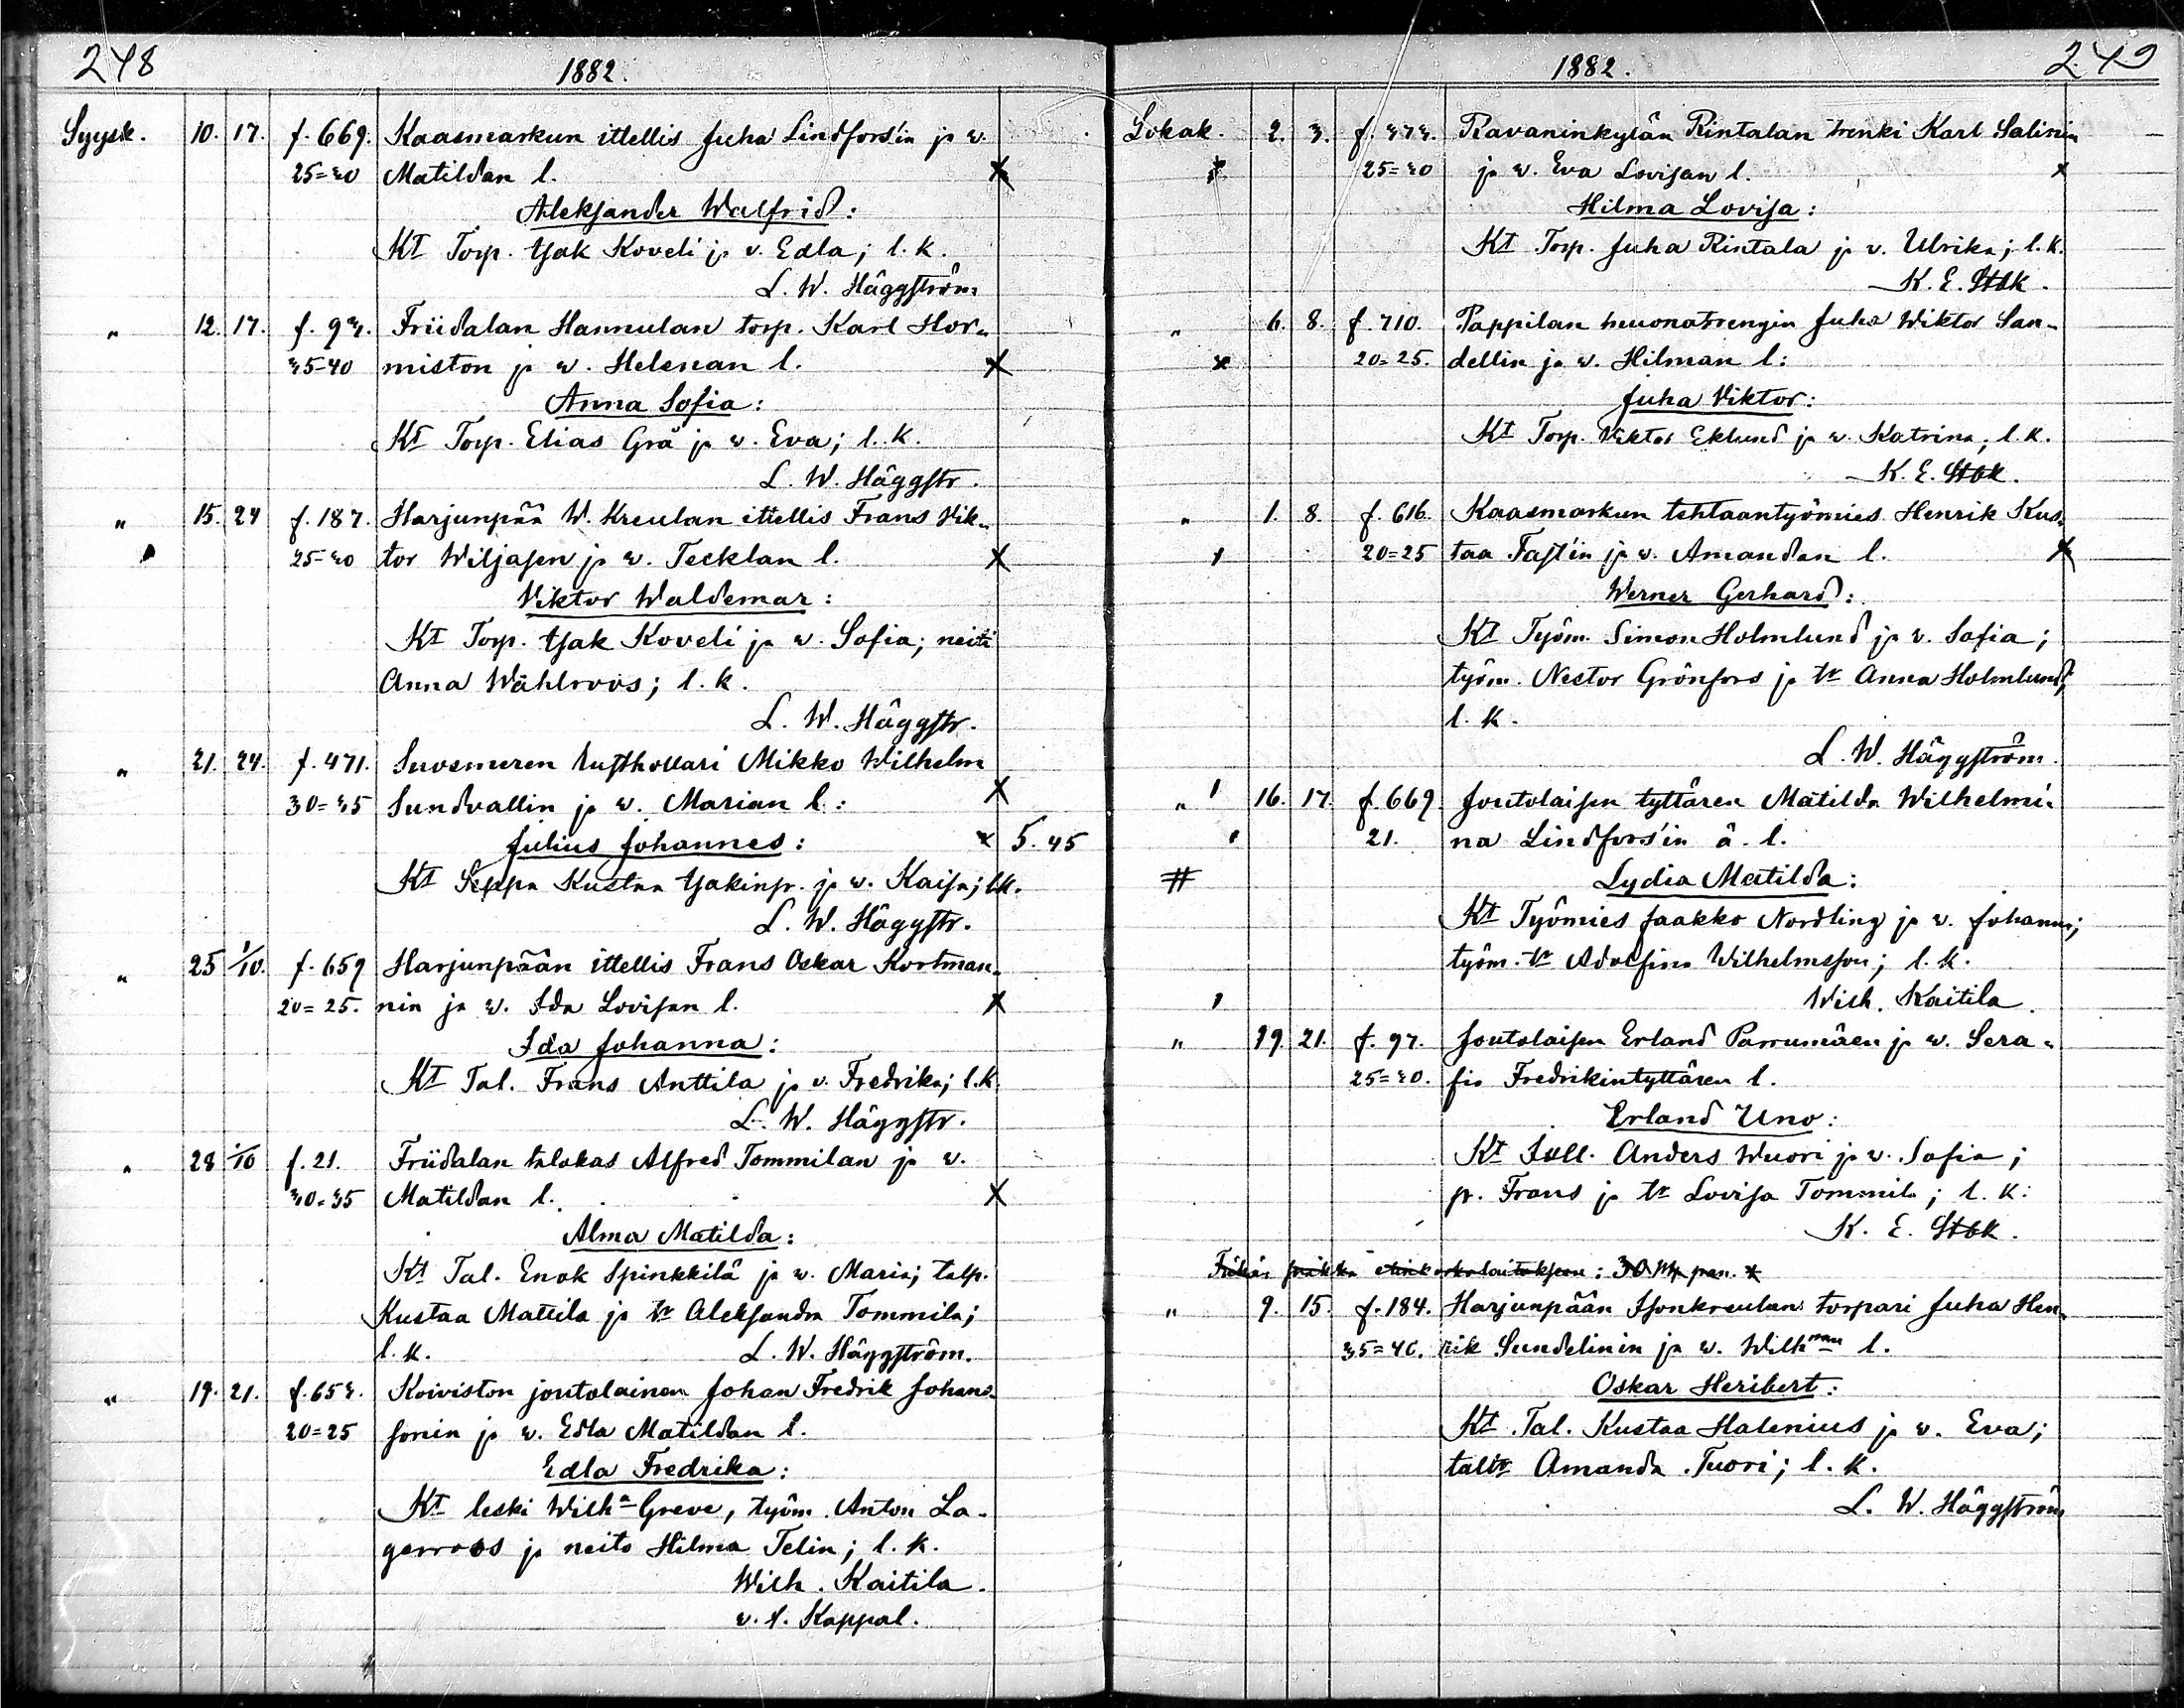 248
1882.
Syysk. 10. 17. f. 669. Kaasmarkun ittellis Juha Lindfors'in ja v.
25=30 Matildan l. X
Aleksander Walfrid:
Kt Torp. Isak Koveli ja v. Edla; l. k.
L. W. Häggström
" 12. 17. f. 93. Friidalan Hannulan torp. Karl Hor-
35-40 miston ja v. Helenan l. X
Anna Sofia:
Kt Torp. Elias Grä ja v. Eva; l. k.
L. W. Häggstr.
" 15. 24 f. 187. Harjunpää W. Kreulan ittellis Frans Vik-
25=30 tor Wiljasen ja v. Tecklan l. X
Viktor Waldemar:
Kt Torp. Isak Koveli ja v. Sofia; neiti
Anna Wählroos; l. k.
L. W. Häggstr.
" 21. 24. f. 471. Suosmeren rusthollari Mikko Wilhelm
30=35 Sundvallin ja v. Marian l.: X
Julius Johannes: x 5. 45
Kt Seppä Kustaa Isakinp. ja v. Kaisa; l.k.
L. W. Häggstr.
" 25 1/10. f. 659 Harjunpään ittellis Frans Oskar Kortman-
20=25. nin ja v. Ida Lovisan l. X
Ida Johanna:
Kt Tal. Frans Anttila ja v. Fredrika; l.k.
L. W. Häggstr.
" 28 1/10 f. 21. Friidalan talokas Alfred Tommilan ja v.
30=35 Matildan l. X
Alma Matilda:
Kt Tal. Enok Spinkkilä ja v. Maria; talp.
Kustaa Mattila ja tr Aleksandra Tommila;
l. k. L. W. Häggström.
" 19. 21. f. 653. Koiviston joutolainen Johan Fredrik Johans-
20=25 sonin ja v. Edla Matildan l.
Edla Fredrika:
Kt leski Wilha Greve, työm. Anton La-
gerroos ja neito Hilma Telin; l. k.
Wilh. Kaitila.
v. t. Kappal.
1882.
249
Lokak. 2. 3. f. 373. Ravaninkylän Rintalan trenki Karl Salinin
25=30 ja v. Eva Lovisan l. x
Hilma Lovisa:
Kt Torp. Juha Rintala ja v. Ulrika; l. k.
K. E. Stbk.
" 6. 8. f. 710. Pappilan huonatrengin Juha Wiktor San-
x 20=25. dellin ja v. Hilman l:
Juha Viktor:
Kt Torp. Viktor Eklund ja v. Katrina; l. k.
K. E. Stbk.
" 1. 8. f. 616. Kaasmarkun tehtaantyömies Henrik Kus-
20=25 taa Fast'in ja v. Amandan l. X
Werner Gerhard:
Kt Työm. Simon Holmlund ja v. Sofia;
työm. Nestor Grönfors ja tr Anna Holmlund;
l. k.
L. W. Häggström.
" 16. 17. f. 669 Joutolaisen tyttären Matilda Wilhelmi-
21. na Lindfors'in ä. l.
# Lydia Matilda:
Kt Työmies Jaakko Nordling ja v. Johanna;
työm. tr Adolfina Wilhelmsson; l. k.
Wilh. Kaitila.
" 19. 21. f. 97. Joutolaisen Erland Parrumäen ja v. Sera-
25=30. fia Fredrikintyttären l.
Erland Uno:
Kt Itell. Anders Wuori ja v. Sofia;
p. Frans ja tr Lovisa Tommila; l. k:
K. E. Stbk.
: 30 pen. x
" 9. 15. f. 184. Harjunpään Isonkreulan torpari Juha Hen-
35=40. rik Sundelinin ja v. Wilhnan l.
Oskar Heribert:
Kt. Tal. Kustaa Halenius ja v. Eva;
taltr Amanda Tuori; l. k.
L. W. Häggström